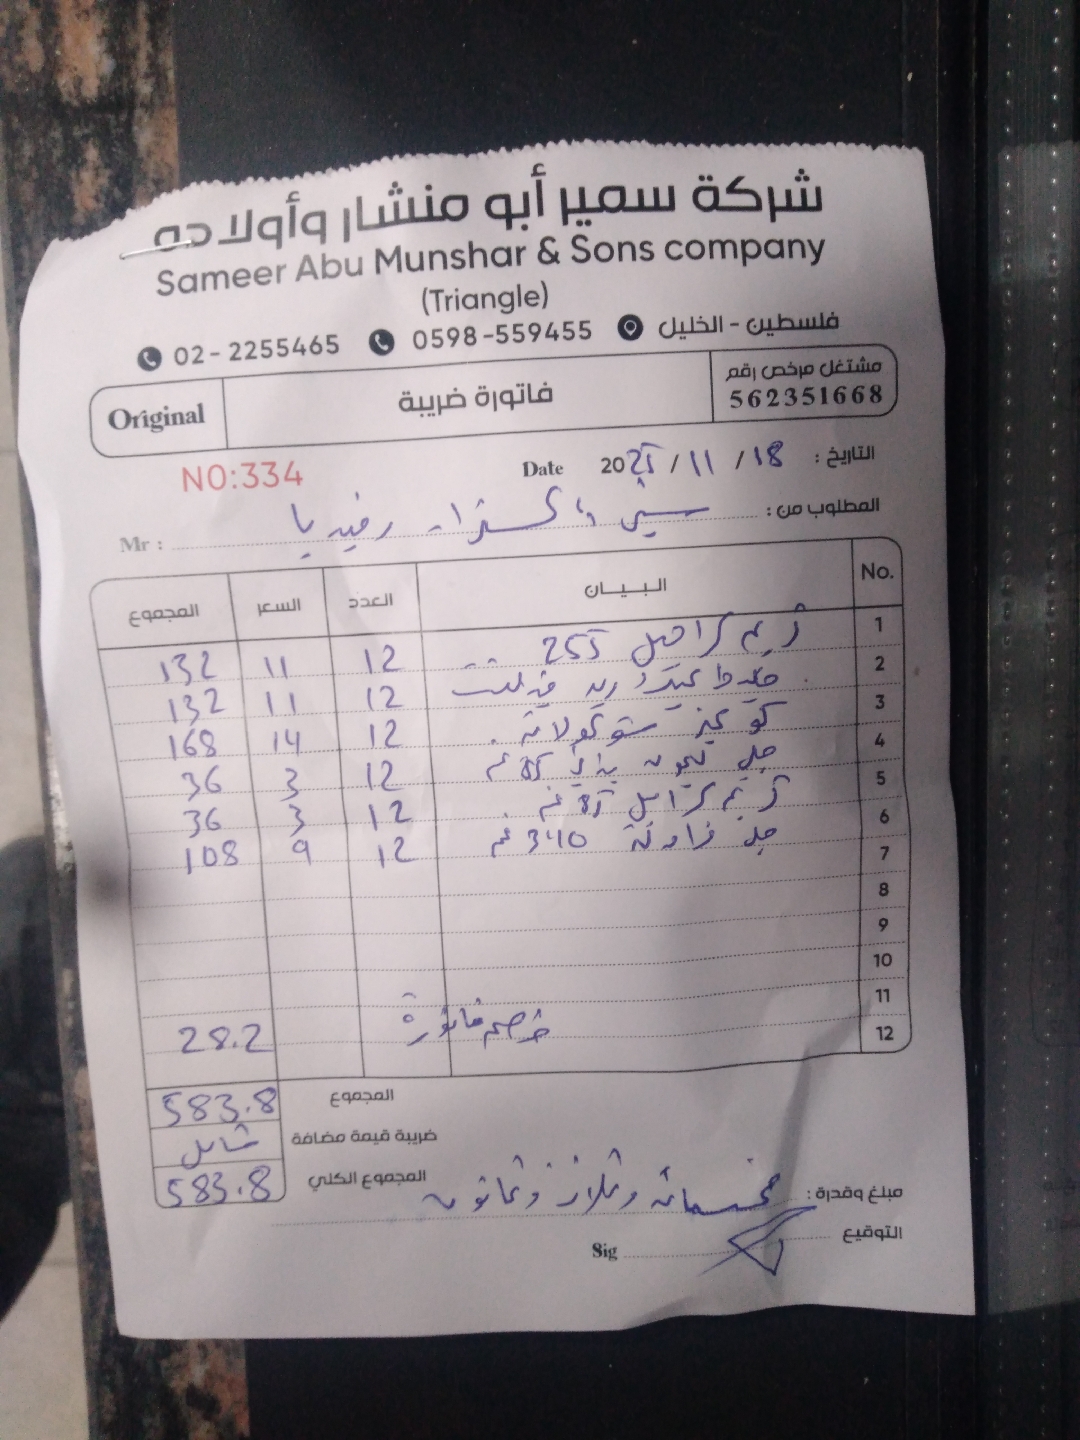 شركة سمير أبو منشار وأولاده
Sameer Abu Munshar & Sons company
(Triangle)
02-2255465 0598-559455 فلسطين - الخليل
مشتغل مرخص رقم
562351668
فاتورة ضريبة
Original
NO:334
التاريخ : 18 / 11 / 2025 Date
المطلوب من : رفيديا Mr :
No. البيـــان العدد السعر المجموع
1 كراميل 255 12 11 132
2 12 11 132
3 12 14 168
4 85 غم 12 3 36
5 85 غم 12 3 36
6 340 غم 12 9 108
7
8
9
10
11
12 خصم فاتورة 28.2
المجموع 583.8
ضريبة قيمة مضافة شامل
المجموع الكلي 583.8
مبلغ وقدرة : خمسمائة وثلاث وثمانون
التوقيع Sig